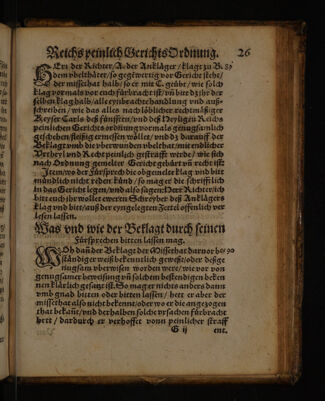 Reichs peinlich Gerichts Ordnung. 26
HErr der Richter/ A. der Ankläger/ klagt zu B.
dem vbelthäter/ so gegēwertig vor Gericht steht/
der missethat halb/ so er mit C. geübt/ wie solch
klag vormals vor euch fürbracht ist/ vñ bit dz jhr der
selben klag halb/ alle einbrachte handlung vnd auff-
schreiben/ wie das alles nach löblicher rechtmässiger
Keyser Carls deß fünfften/ vnd deß Heyligen Reichs
peinlichen Gerichts ordnung vormals genugsamlich
geschehen/ fleissig ermessen wöllet/ vnd dz darauff der
Beklagt vmb die vberwunden vbelthat/ mit endlicher
Vrtheyl vnd Recht peinlich gestrafft werde/ wie sich
nach Ordnung gemelter Gericht gebürt vñ recht ist.
Item/ wo der Fürsprech die obgemelt klag vnd bitt
mündlich nicht reden künd/ so mag er die schrifftlich
in das Gericht legen/ vnd also sagen: Herr Richter/ ich
bitt euch jhr wöllet ewern Schreyber deß Anklägers
klag vnd bitt/ auß der eyngelegten Zettel öffentlich ver-
lesen lassen.
Was vnd wie der Beklagt durch seinen
Fürsprechen bitten lassen mag.
WO dañ der Beklagt der Missethat darvor be- 90
ständiger weiß bekenntlich gewest/ oder deß ge-
nugsam vberwiesen worden were/ wie vor von
genugsamer beweisung vñ solchem bestendigen beken-
nen klärlich gesatzt ist. So mag er nichts anders dann
vmb gnad bitten oder bitten lassen/ hett er aber der
missethat also nicht bekennt/ oder wo er die angezogen
that bekañt/ vnd derhalben solche vrsachen fürbracht
hett/ dardurch er verhofft von peinlicher straff
G ij ent.